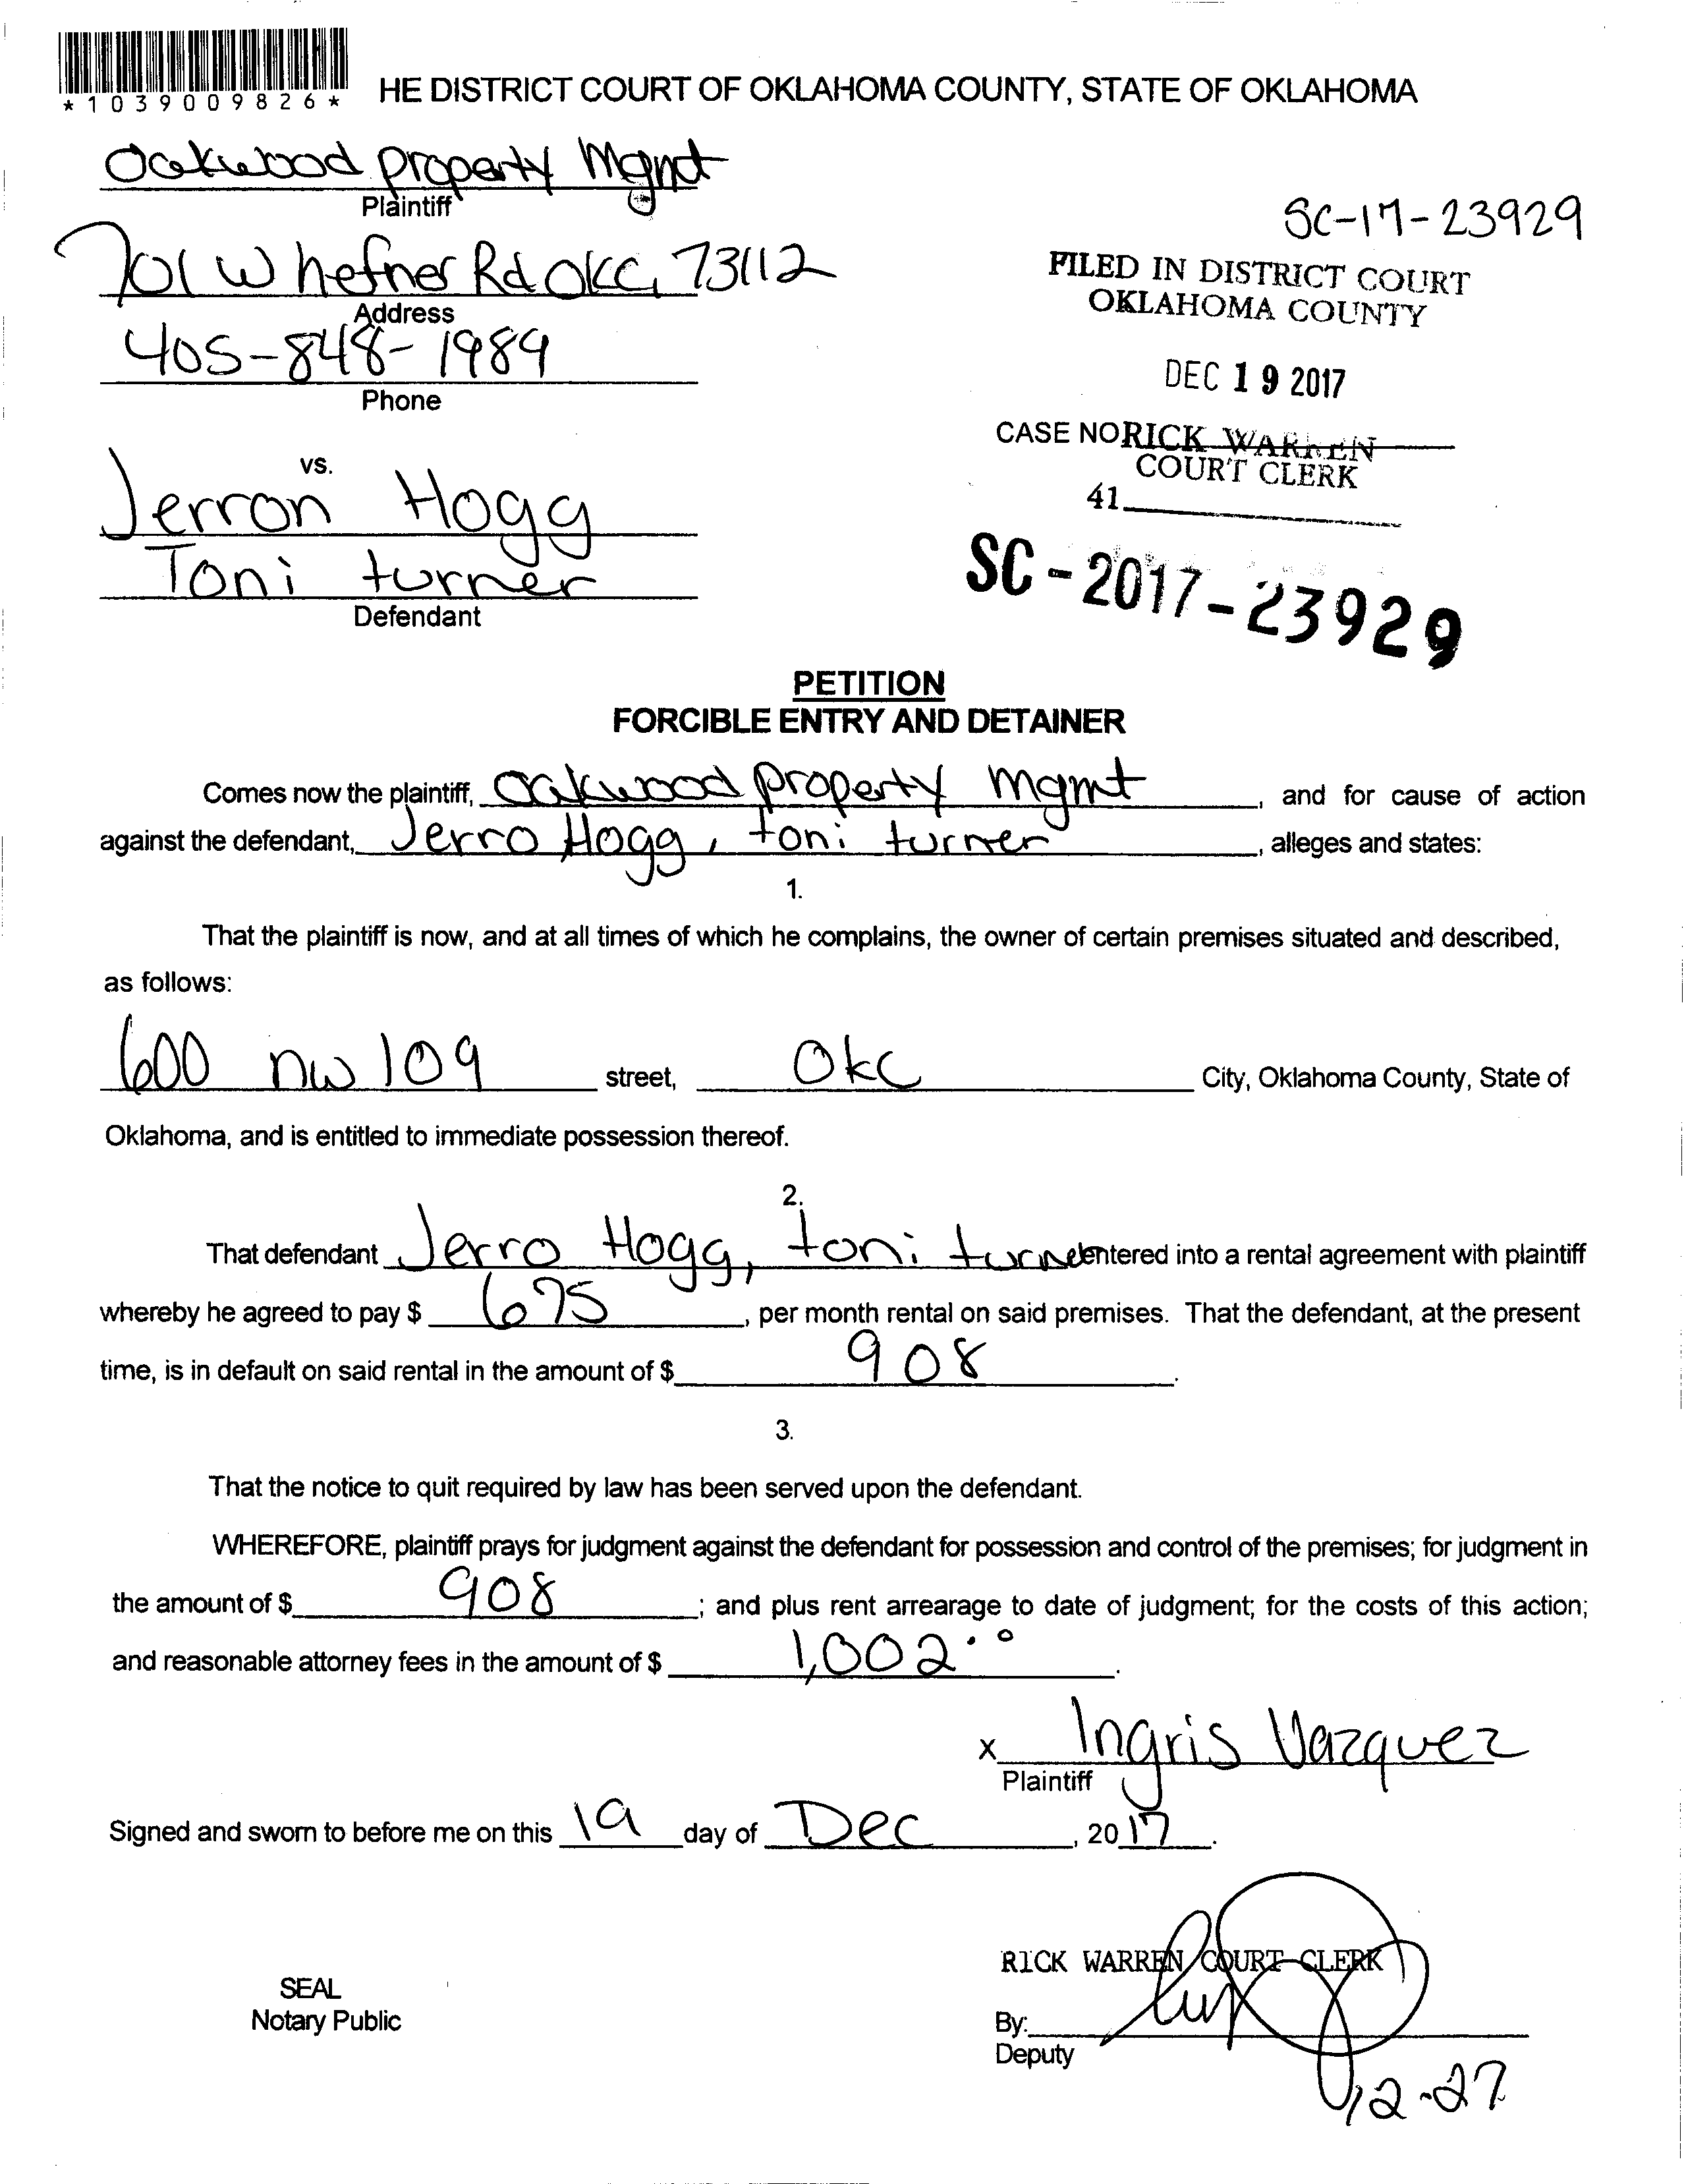 *1039009826*
HE DISTRICT COURT OF OKLAHOMA COUNTY, STATE OF OKLAHOMA
Oakwood property Mgnt
Plaintiff
SC-17-23929
701 W hefner Rd OKC, 73112
Address
FILED IN DISTRICT COURT
OKLAHOMA COUNTY
405-848-1989
Phone
DEC 19 2017
CASE NO RICK WARREN
COURT CLERK
41
vs.
Jerron Hogg
Toni turner
Defendant
SC-2017-23929
PETITION
FORCIBLE ENTRY AND DETAINER
Comes now the plaintiff, Oakwood property mgmt, and for cause of action
against the defendant, Jerro Hogg, toni turner, alleges and states:
1.
That the plaintiff is now, and at all times of which he complains, the owner of certain premises situated and described,
as follows:
600 nw 109 street, Okc City, Oklahoma County, State of
Oklahoma, and is entitled to immediate possession thereof.
2.
That defendant Jerro Hogg, toni turner entered into a rental agreement with plaintiff
whereby he agreed to pay $ 675, per month rental on said premises. That the defendant, at the present
time, is in default on said rental in the amount of $ 908.
3.
That the notice to quit required by law has been served upon the defendant.
WHEREFORE, plaintiff prays for judgment against the defendant for possession and control of the premises; for judgment in
the amount of $ 908; and plus rent arrearage to date of judgment; for the costs of this action;
and reasonable attorney fees in the amount of $ 1,002.
x Ingris Vazquez
Plaintiff
Signed and sworn to before me on this 19 day of Dec, 2017.
RICK WARREN COURT CLERK
SEAL
Notary Public
By:
Deputy
12-27